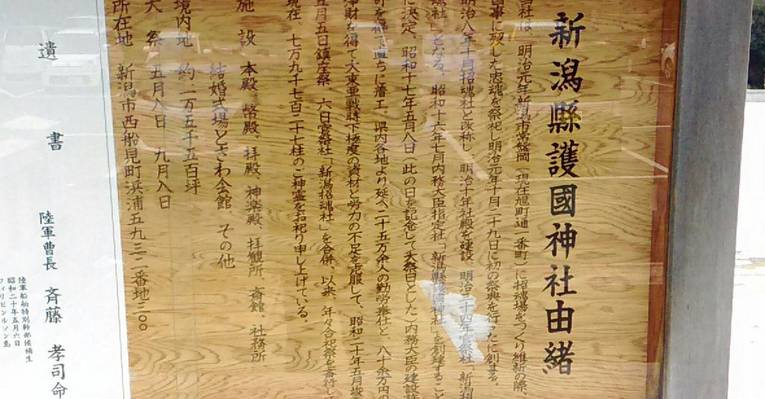 新潟縣護國神社由緒
当社は、明治元年新潟市常盤岡(現在旭町通一番町)に招魂場をつくり維新の際、
事に歿した忠魂を祭祀、明治元年十月二十九日に初の祭典を行ったに創まる。
明治八年十月招魂社と改称し、明治十年社殿を建設、明治三十四年官祭社「新潟招
魂社」となる。昭和十六年七月内務大臣指定社「新潟縣護國神社」を創建すること
に決定、昭和十七年五月八日(此の日を記念して大祭日とした)内務大臣の建設許
可を得て直ちに着工、県内各地より延べ二十五万余人の勤労奉仕と、八十余万円の
浄財を得て、大東亜戦時下極度の資材と労力の不足を克服して、昭和二十年五月竣
五月五日鎮座祭、六日官祭社「新潟招魂社」を合併、以来、年々合祀祭を斎行し
現在 七万九千七百二十七柱のご神霊をお祀り申し上げている。
施設 本殿 幣殿 拝殿 神楽殿 拝観所 斎館 社務所
結婚式場ときわ会館 その他
境内地 約一万五千五百坪
大祭 五月八日 九月八日
所在地 新潟市西船見町浜浦五九三二番地三〇〇
遺書
陸軍曹長 斉藤 孝司命
陸軍船舶特別幹部候補生
昭和二十年五月六日
フィリピンルソン島